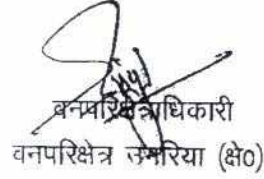 वनपरिक्षेत्राधिकारी
वनपरिक्षेत्र उमरिया (क्षे0)